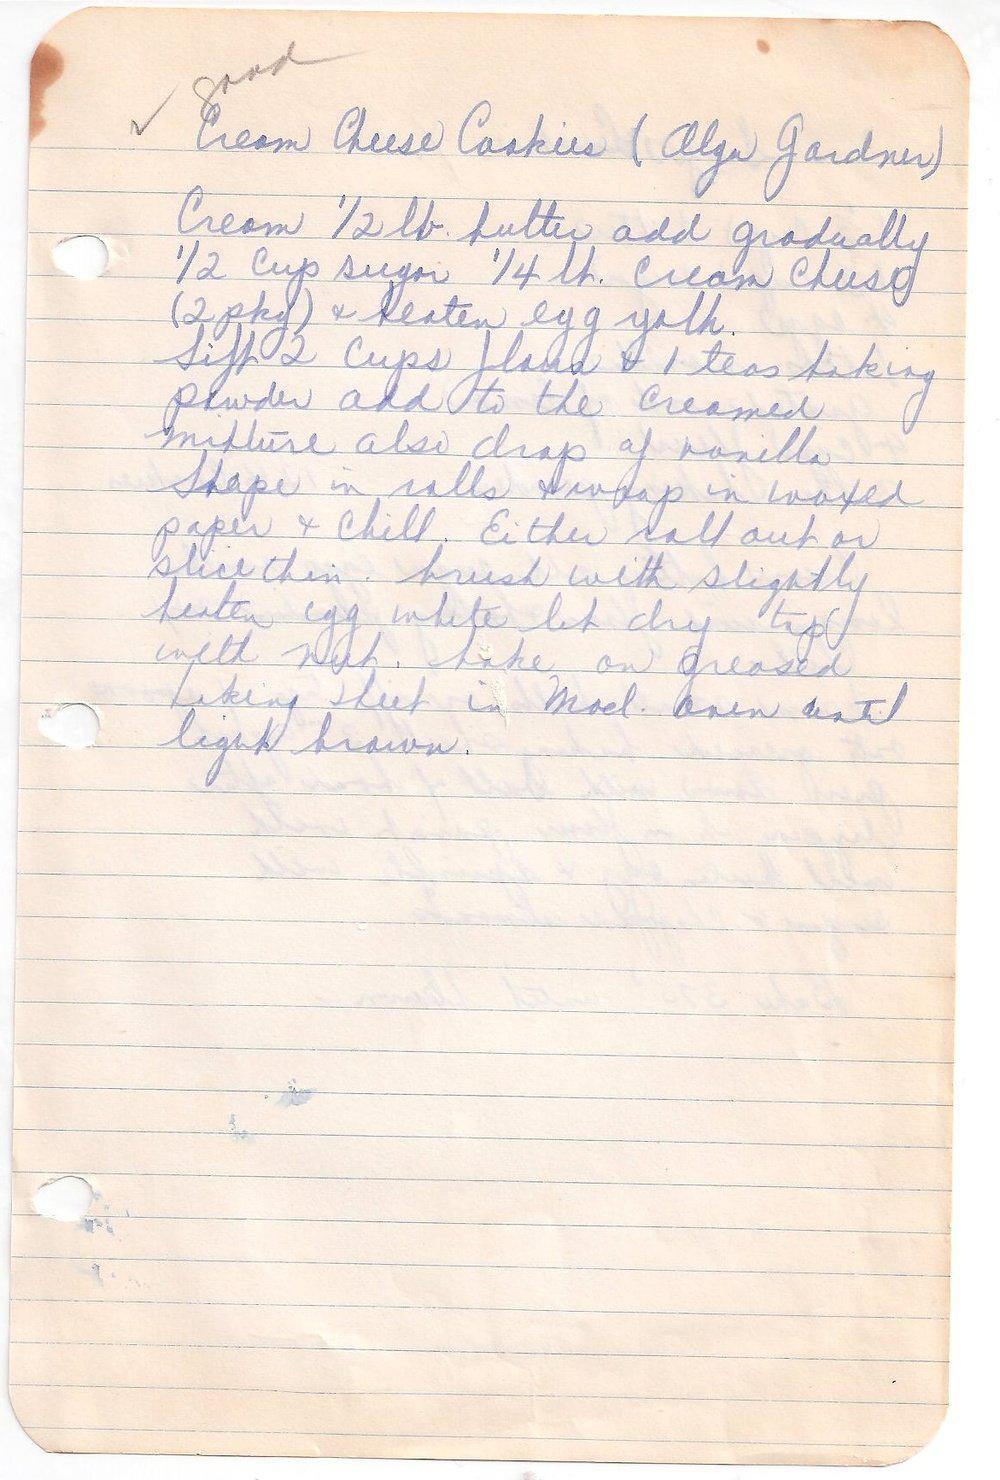 ✓ good
Cream Cheese Cookies (Olga Gardner)
Cream 1/2 lb. butter add gradually
1/2 cup sugar 1/4 lb. cream cheese
(2 pkg) & beaten egg yolk.
Sift 2 cups flour & 1 teas baking
powder add to the creamed
mixture also drop of vanilla
Shape in rolls & wrap in waxed
paper & chill. Either roll out or
slice thin. brush with slightly
beaten egg white let dry top
with nut. bake on greased
baking sheet in Mod. oven until
light brown.